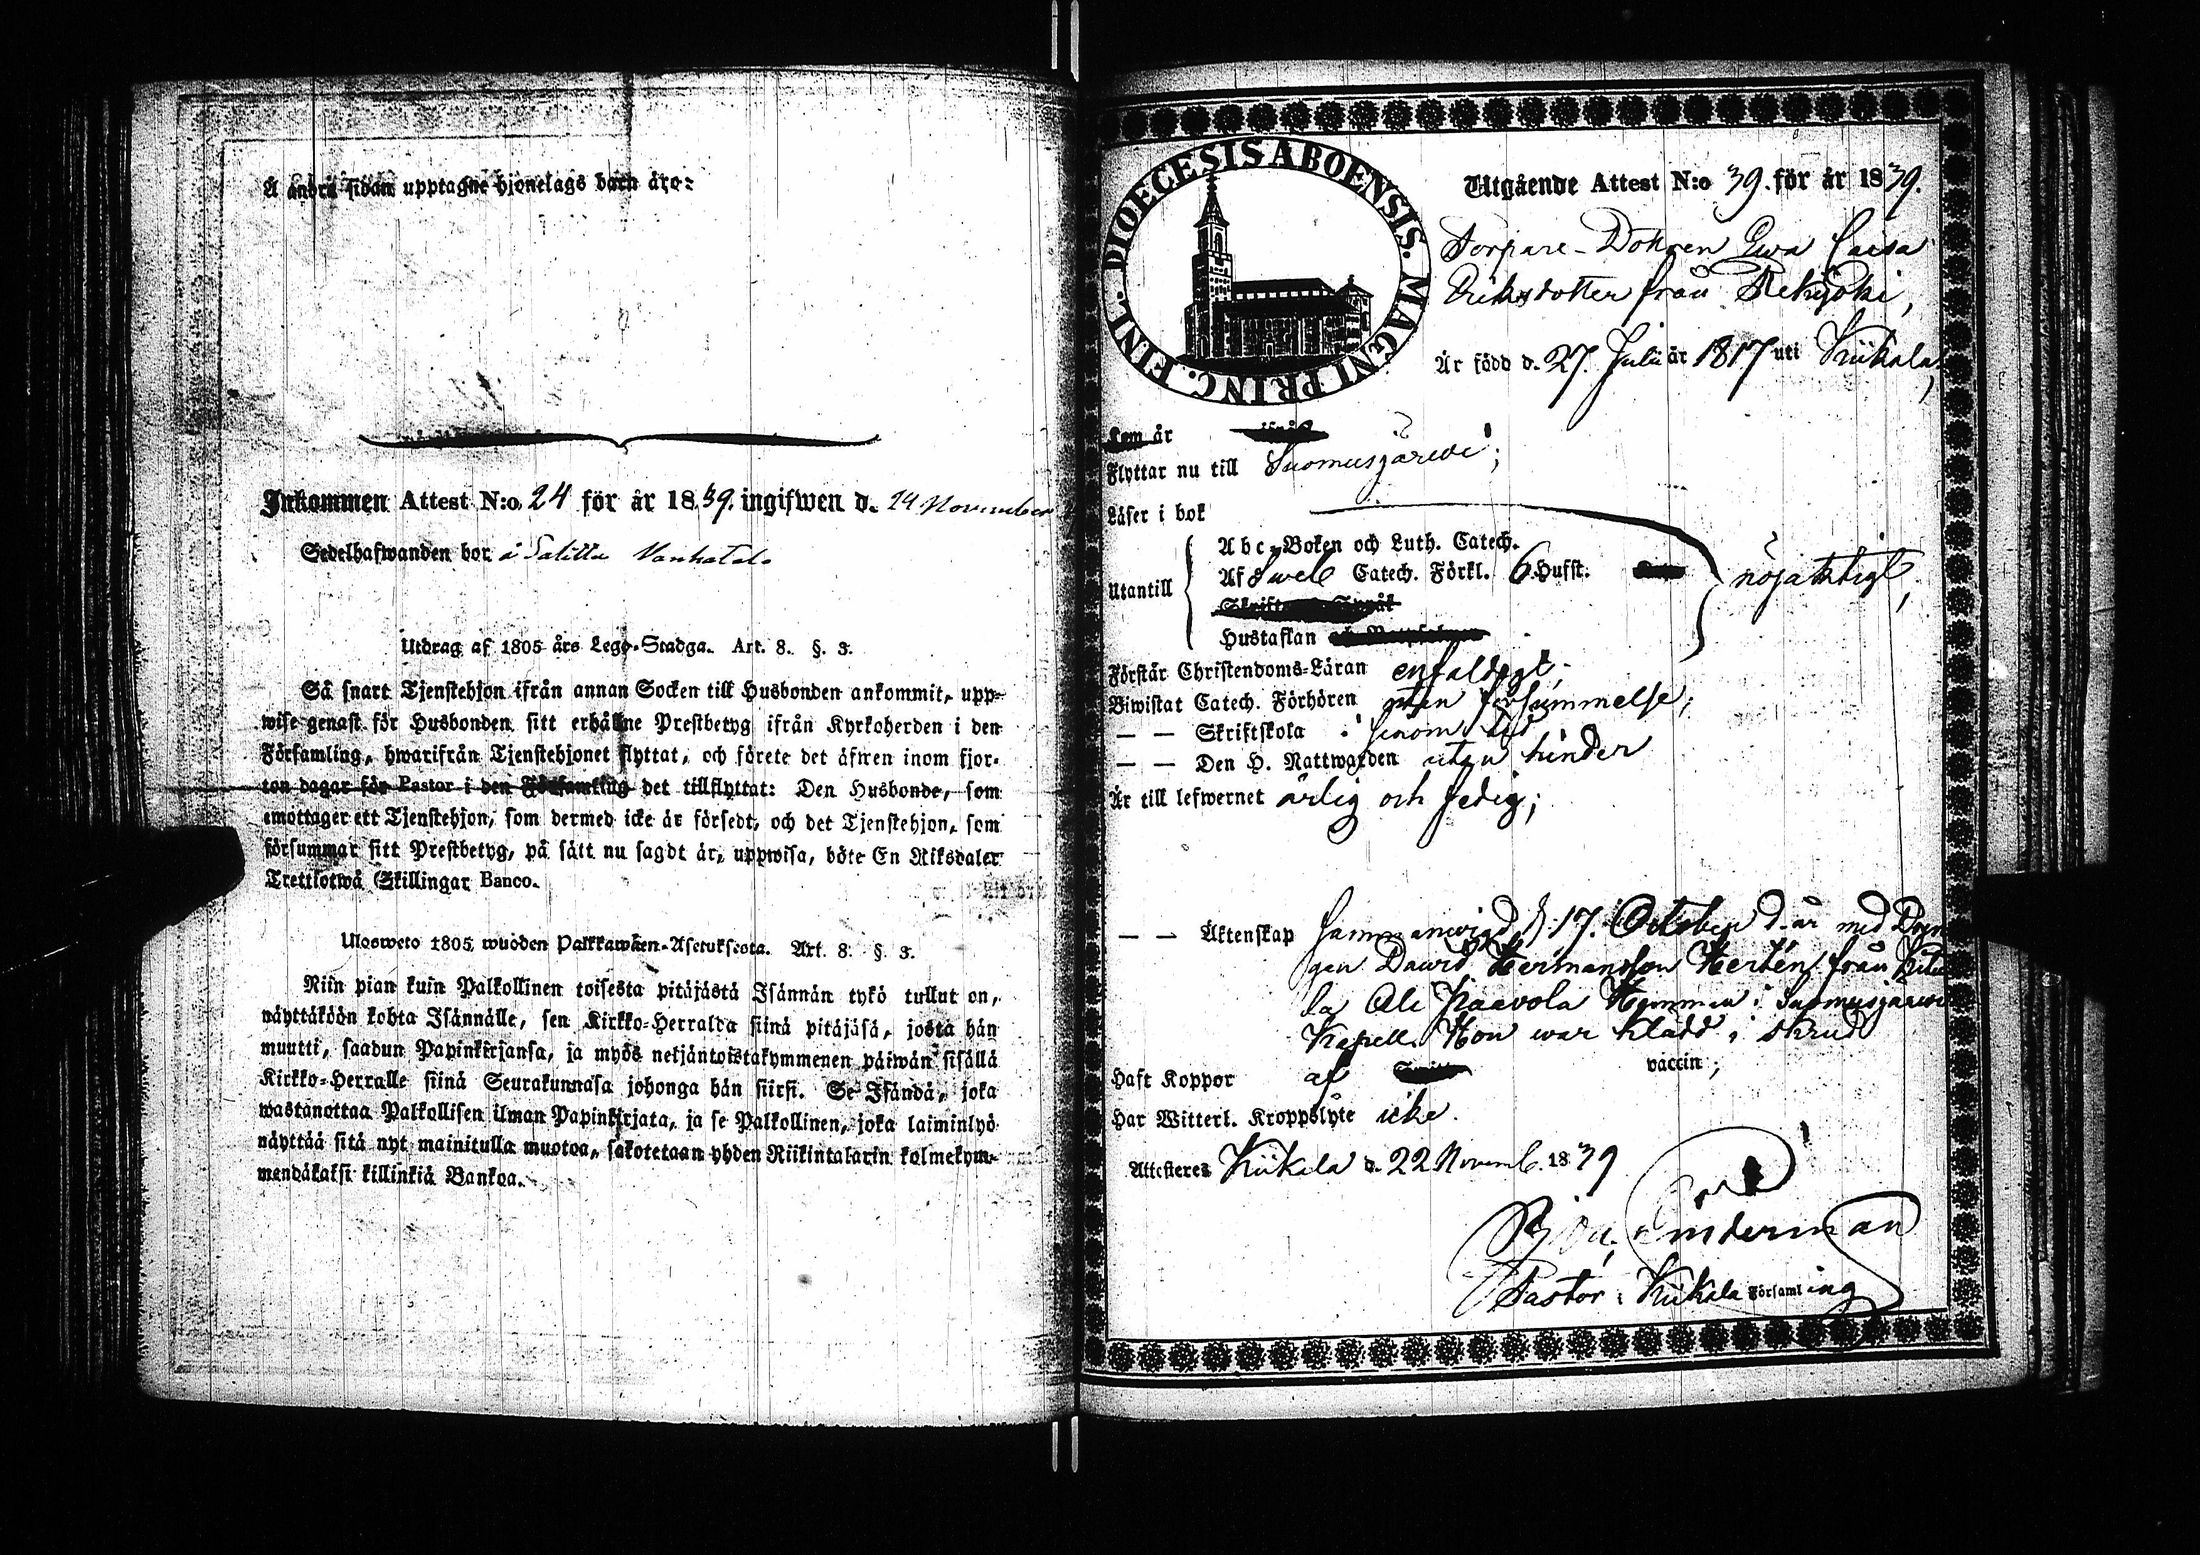 Å andra sidan upptagne hjonelags barn äro:
Inkommen Attest N:o 24 för år 1839. ingifwen d. 24 November
Sedelhafwanden bor å Salittu Vanhatalo
Utdrag af 1805 års Lego-Stadga. Art. 8. §. 3.
Så snart Tjenstehjon ifrån annan Socken till Husbonden ankommit, upp-
wise genast för Husbonden sitt erhållne Prestbetyg ifrån Kyrkoherden i den
Församling, hwarifrån Tjenstehjonet flyttat, och förete det äfwen inom fjor-
ton dagar för Pastor i den Församling det tillflyttat: Den Husbonde, som
emottager ett Tjenstehjon, som dermed icke är försedt, och det Tjenstehjon, som
försummar sitt Prestbetyg, på sätt nu sagdt är, uppwisa, böte En Riksdaler
Trettiotwå Skillingar Banco.
Ulosweto 1805 wuoden Palkkawäen-Asetuksesta. Art. 8. §. 3.
Niin pian kuin Palkollinen toisesta pitäjästä Isännän tykö tullut on,
näyttäköön kohta Isännälle, sen Kirkko-Herralda siinä pitäjäsä, josta hän
muutti, saadun Papinkirjansa, ja myös neljäntoistakymmenen päiwän sisällä
Kirkko-Herralle siinä Seurakunnasa johonga hän siirsi. Se Isändä, joka
wastanottaa Palkollisen ilman Papinkirjata, ja se Palkollinen, joka laiminlyö
näyttää sitä nyt mainitulla muotoa, sakotetaan yhden Riikintalarin kolmekym-
mendäkaksi killinkiä Bankoa.
DIOECESIS ABOENSIS. MAGNI PRINC. FINL.
Utgående Attest N:o 39. för år 1839.
Torpare-Dottren Ewa Caisa
Eriksdotter från Rekijoki,
Är född d. 27. Julii år 1817 uti Kiikala,
Kom år
Flyttar nu till Suomusjärwi;
Läser i bok
Utantill
Abc-Boken och Luth. Catech.
Af Sweb Catech. Förkl. 6 Hufst.
nöjaktigt,
Hustaflan
Förstår Christendoms-Läran enfaldigt;
Biwistat Catech. Förhören utan försummelse;
— — Skriftskola i sinom tid
— — Den H. Nattwarden utan hinder
Är till lefwernet ärlig och sedig;
— — Äktenskap Sammanwigd d. 17. October d. år med Dren-
gen Dawid Hermansson Hertén från
la Ali Paavola Hemman i Suomusjärwi
Kapell. Hon war klädd i skrud
Haft Koppor af vaccin;
Har Witterl. Kroppslyte icke.
Attesteres Kiikala d. 22 Novemb. 1839
Linderman
Pastor i Kiikala Församling